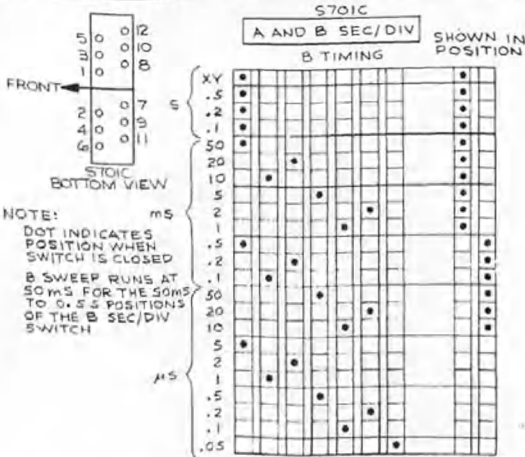 S701C
A AND B SEC/DIV
B TIMING
SHOWN IN
POSITION
5 12
3 10
1 8
FRONT
2 7
4 9
6 11
S701C
BOTTOM VIEW
NOTE:
DOT INDICATES
POSITION WHEN
SWITCH IS CLOSED
B SWEEP RUNS AT
50MS FOR THE 50MS
TO 0.5S POSITIONS
OF THE B SEC/DIV
SWITCH
S
XY
.5
.2
.1
mS
50
20
10
5
2
1
.5
.2
.1
μS
50
20
10
5
2
1
.5
.2
.1
.05